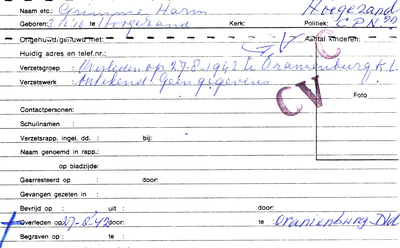 Naam etc.: Grimme Harm Hoogezand
Geboren: te Hoogezand Kerk: Politiek: CPN
Ongehuwd/gehuwd met: Aantal kinderen:
Huidig adres en telef.nr.:
Verzetsgroep : Overleden op 27-8-1942 te Oranienburg K.L.
Verzetswerk : Antekend Geen gegevens
CV
Foto
Contactpersonen:
Schuilnamen :
Verzetsrapp. ingel. dd. : bij:
Naam genoemd in rapp.:
op bladzijde:
Gearresteerd op : door:
Gevangen gezeten in :
Bevrijd op : uit : door:
Overleden op: 27-8-42 door: te : Oranienburg-Dld
Begraven op : te :